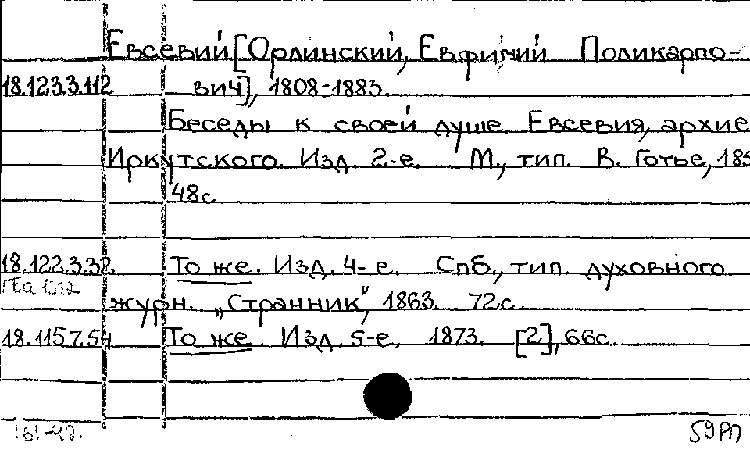 Евсевий [Орлинский, Евфимий Поликарпо-
18.123.3.112 вич], 1808-1883.
Беседы к своей душе Евсевия, архие
Иркутского. Изд. 2-е. М., тип. В. Готье, 185
48с.
18.122.3.32. То же. Изд. 4-е. Спб., тип. духовного
журн. „Странник", 1863. 72с.
18.115.7.54 То же. Изд. 5-е. 1873. [2], 66с.
59РП